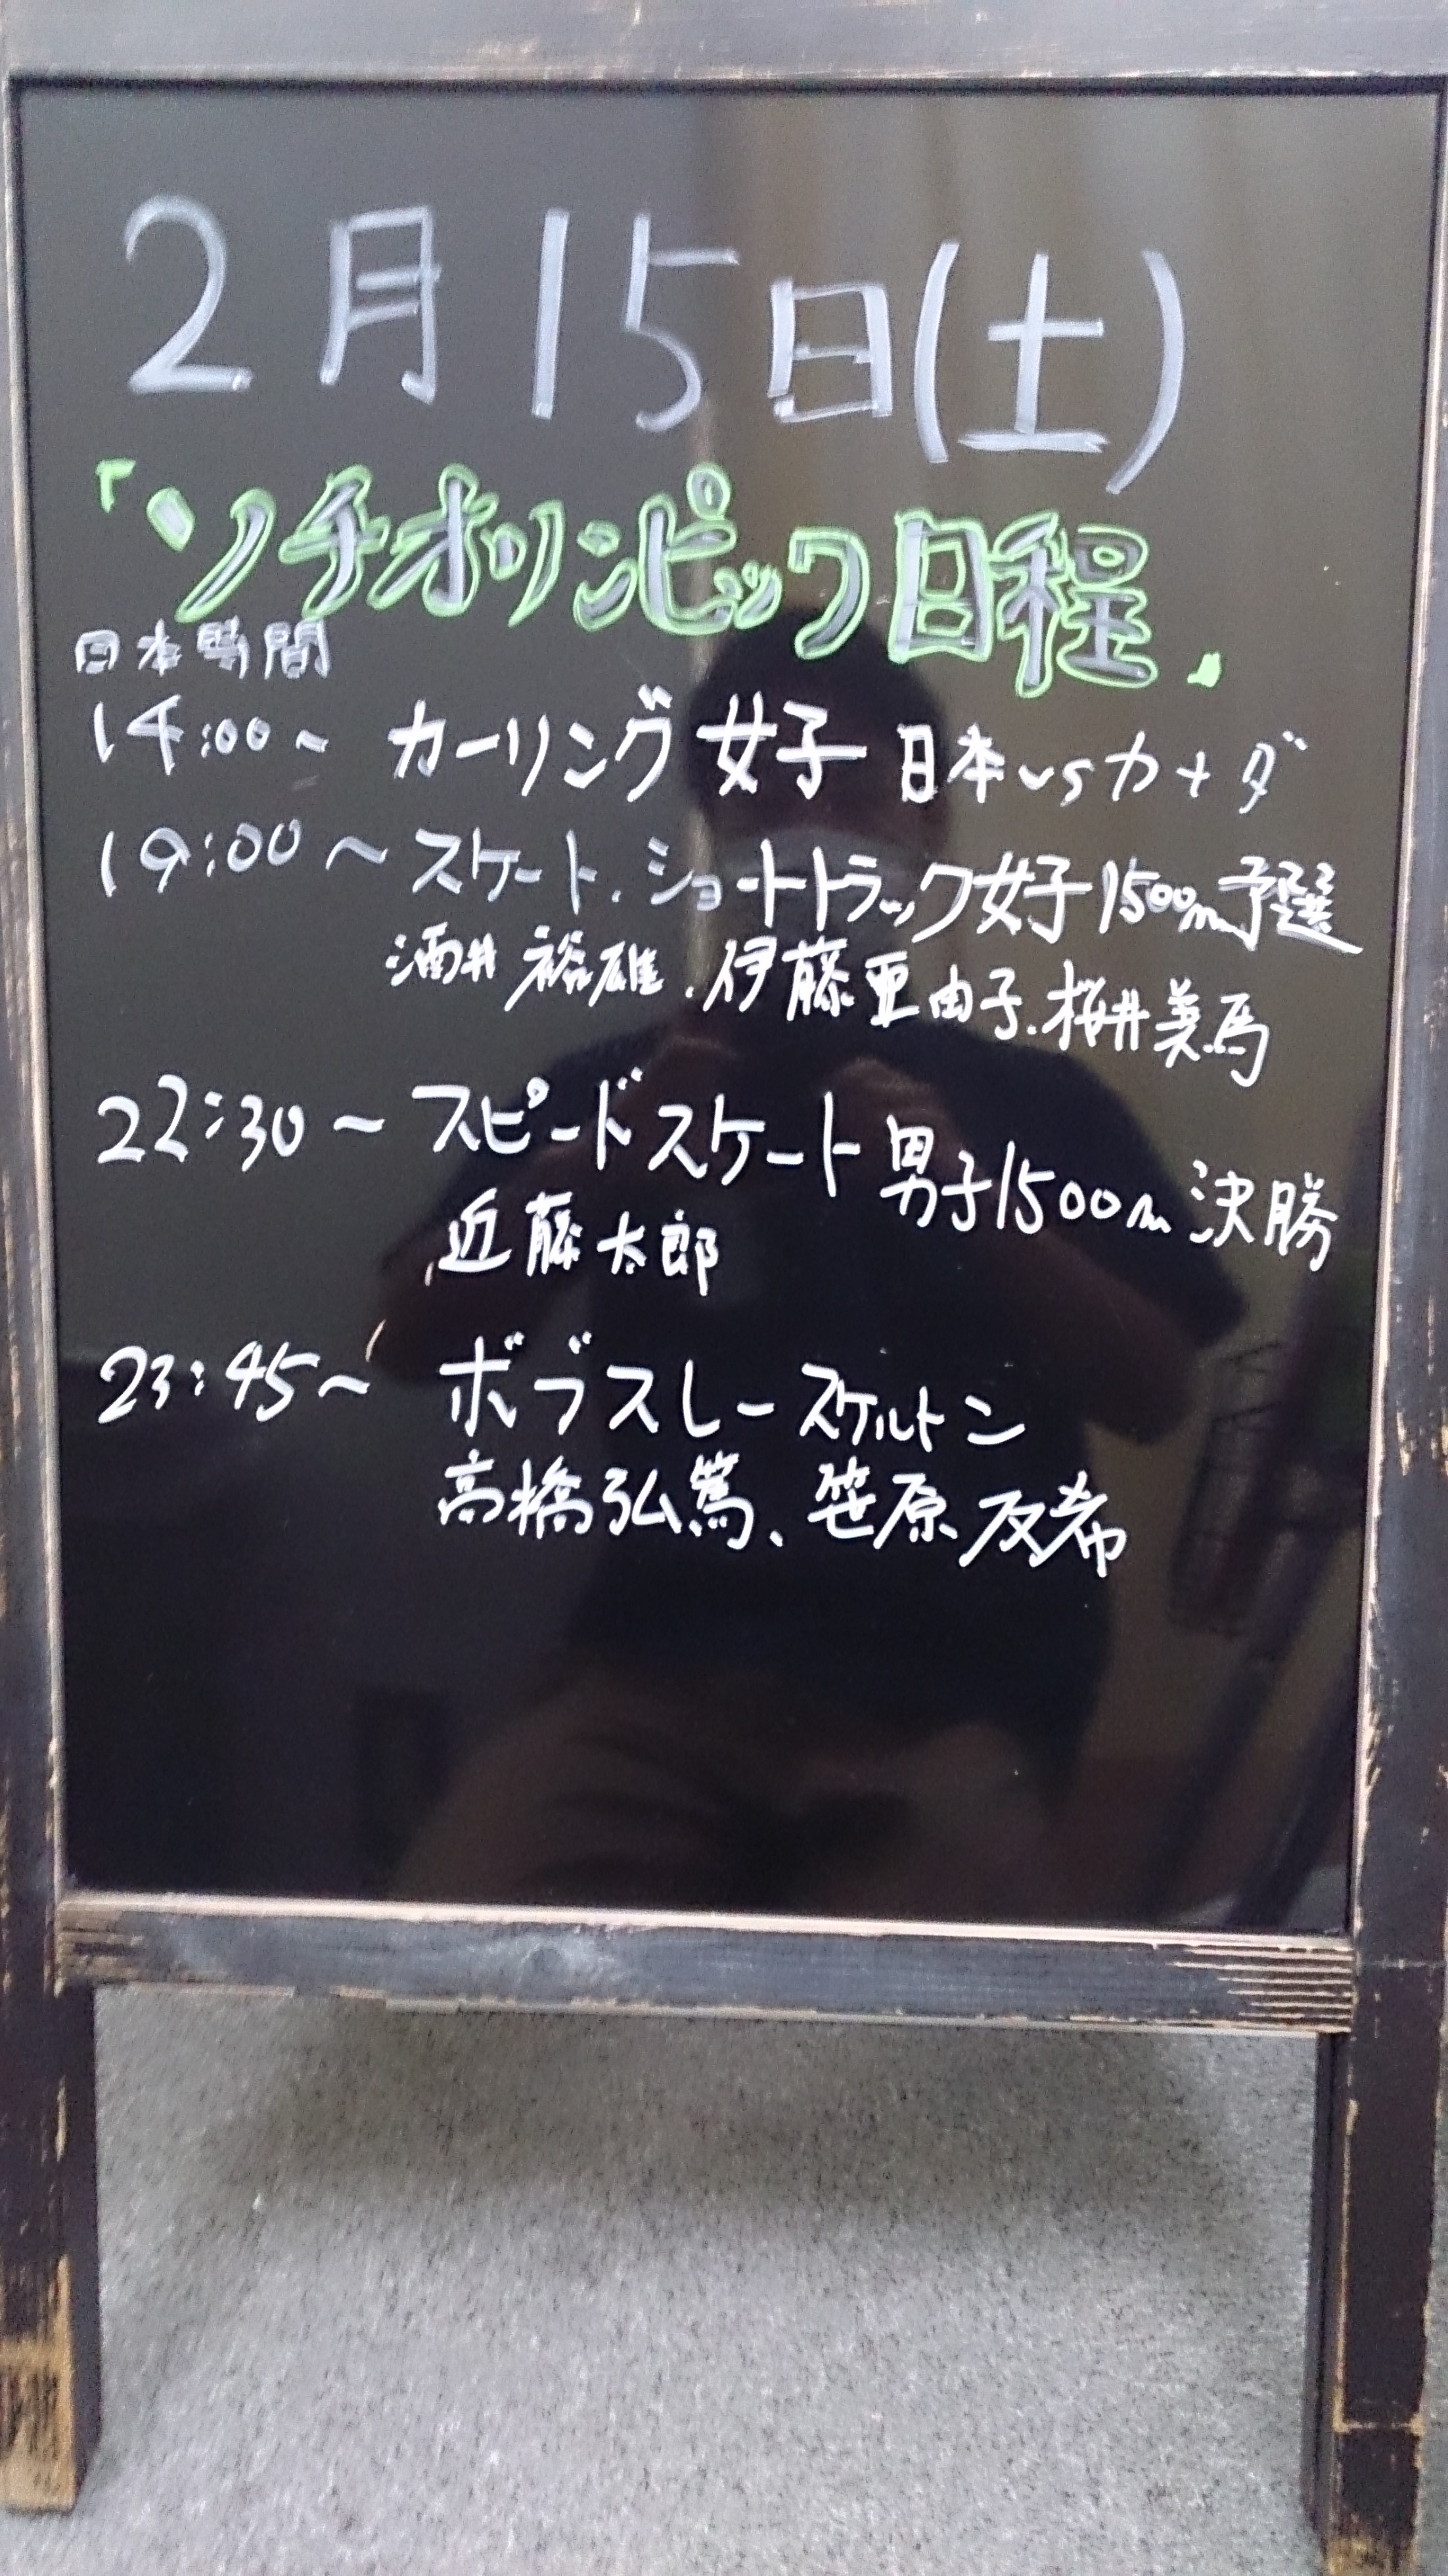 2月15日(土)
「ソチオリンピック日程」
日本時間
14:00~ カーリング 女子 日本vsカナダ
19:00~ スケート.ショートトラック女子1500m予選
酒井裕雄.伊藤亜由子.桜井美馬
22:30~ スピードスケート男子1500m決勝
近藤太郎
23:45~ ボブスレースケルトン
高橋弘篤、笹原友希